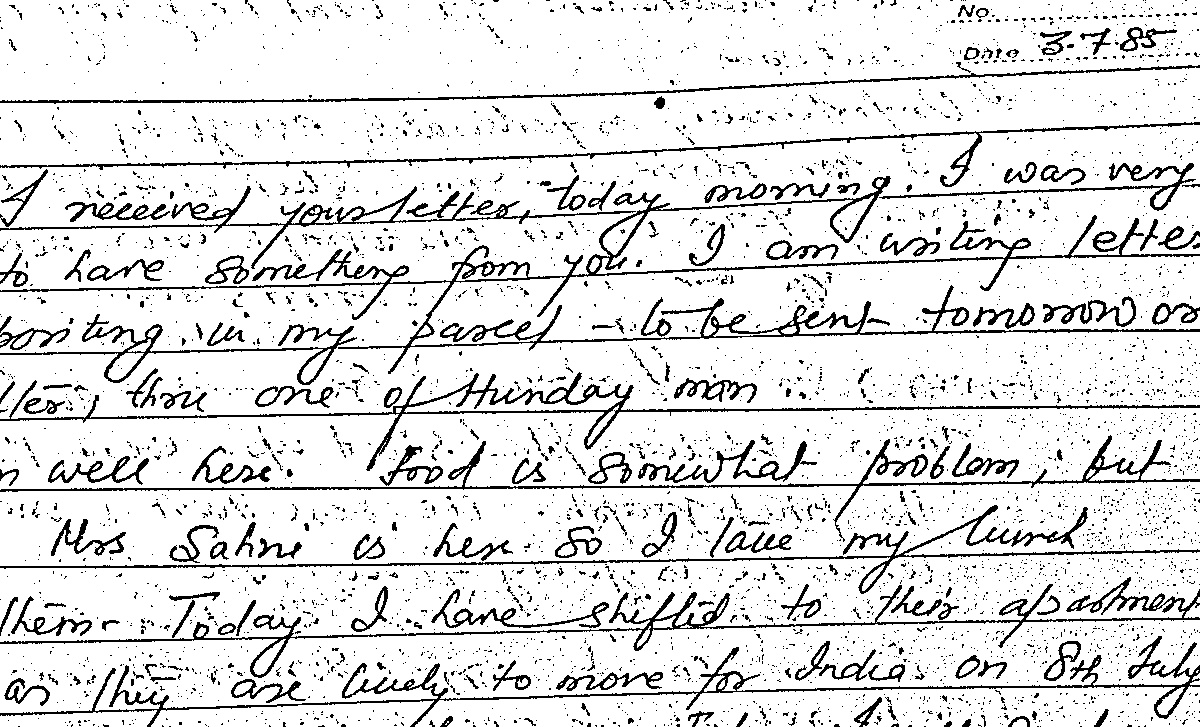 No.
Date 3.7.85
I received your letter, today morning. I was very
to have something from you. I am writing letter
in my parcel - to be sent tomorrow or
thru one of Hunday man ..
well here. Food is somewhat problem, but
Mrs Sahni is here so I take my lunch
them. Today I have shifted to their apartment
as they are likely to move for India on 8th July